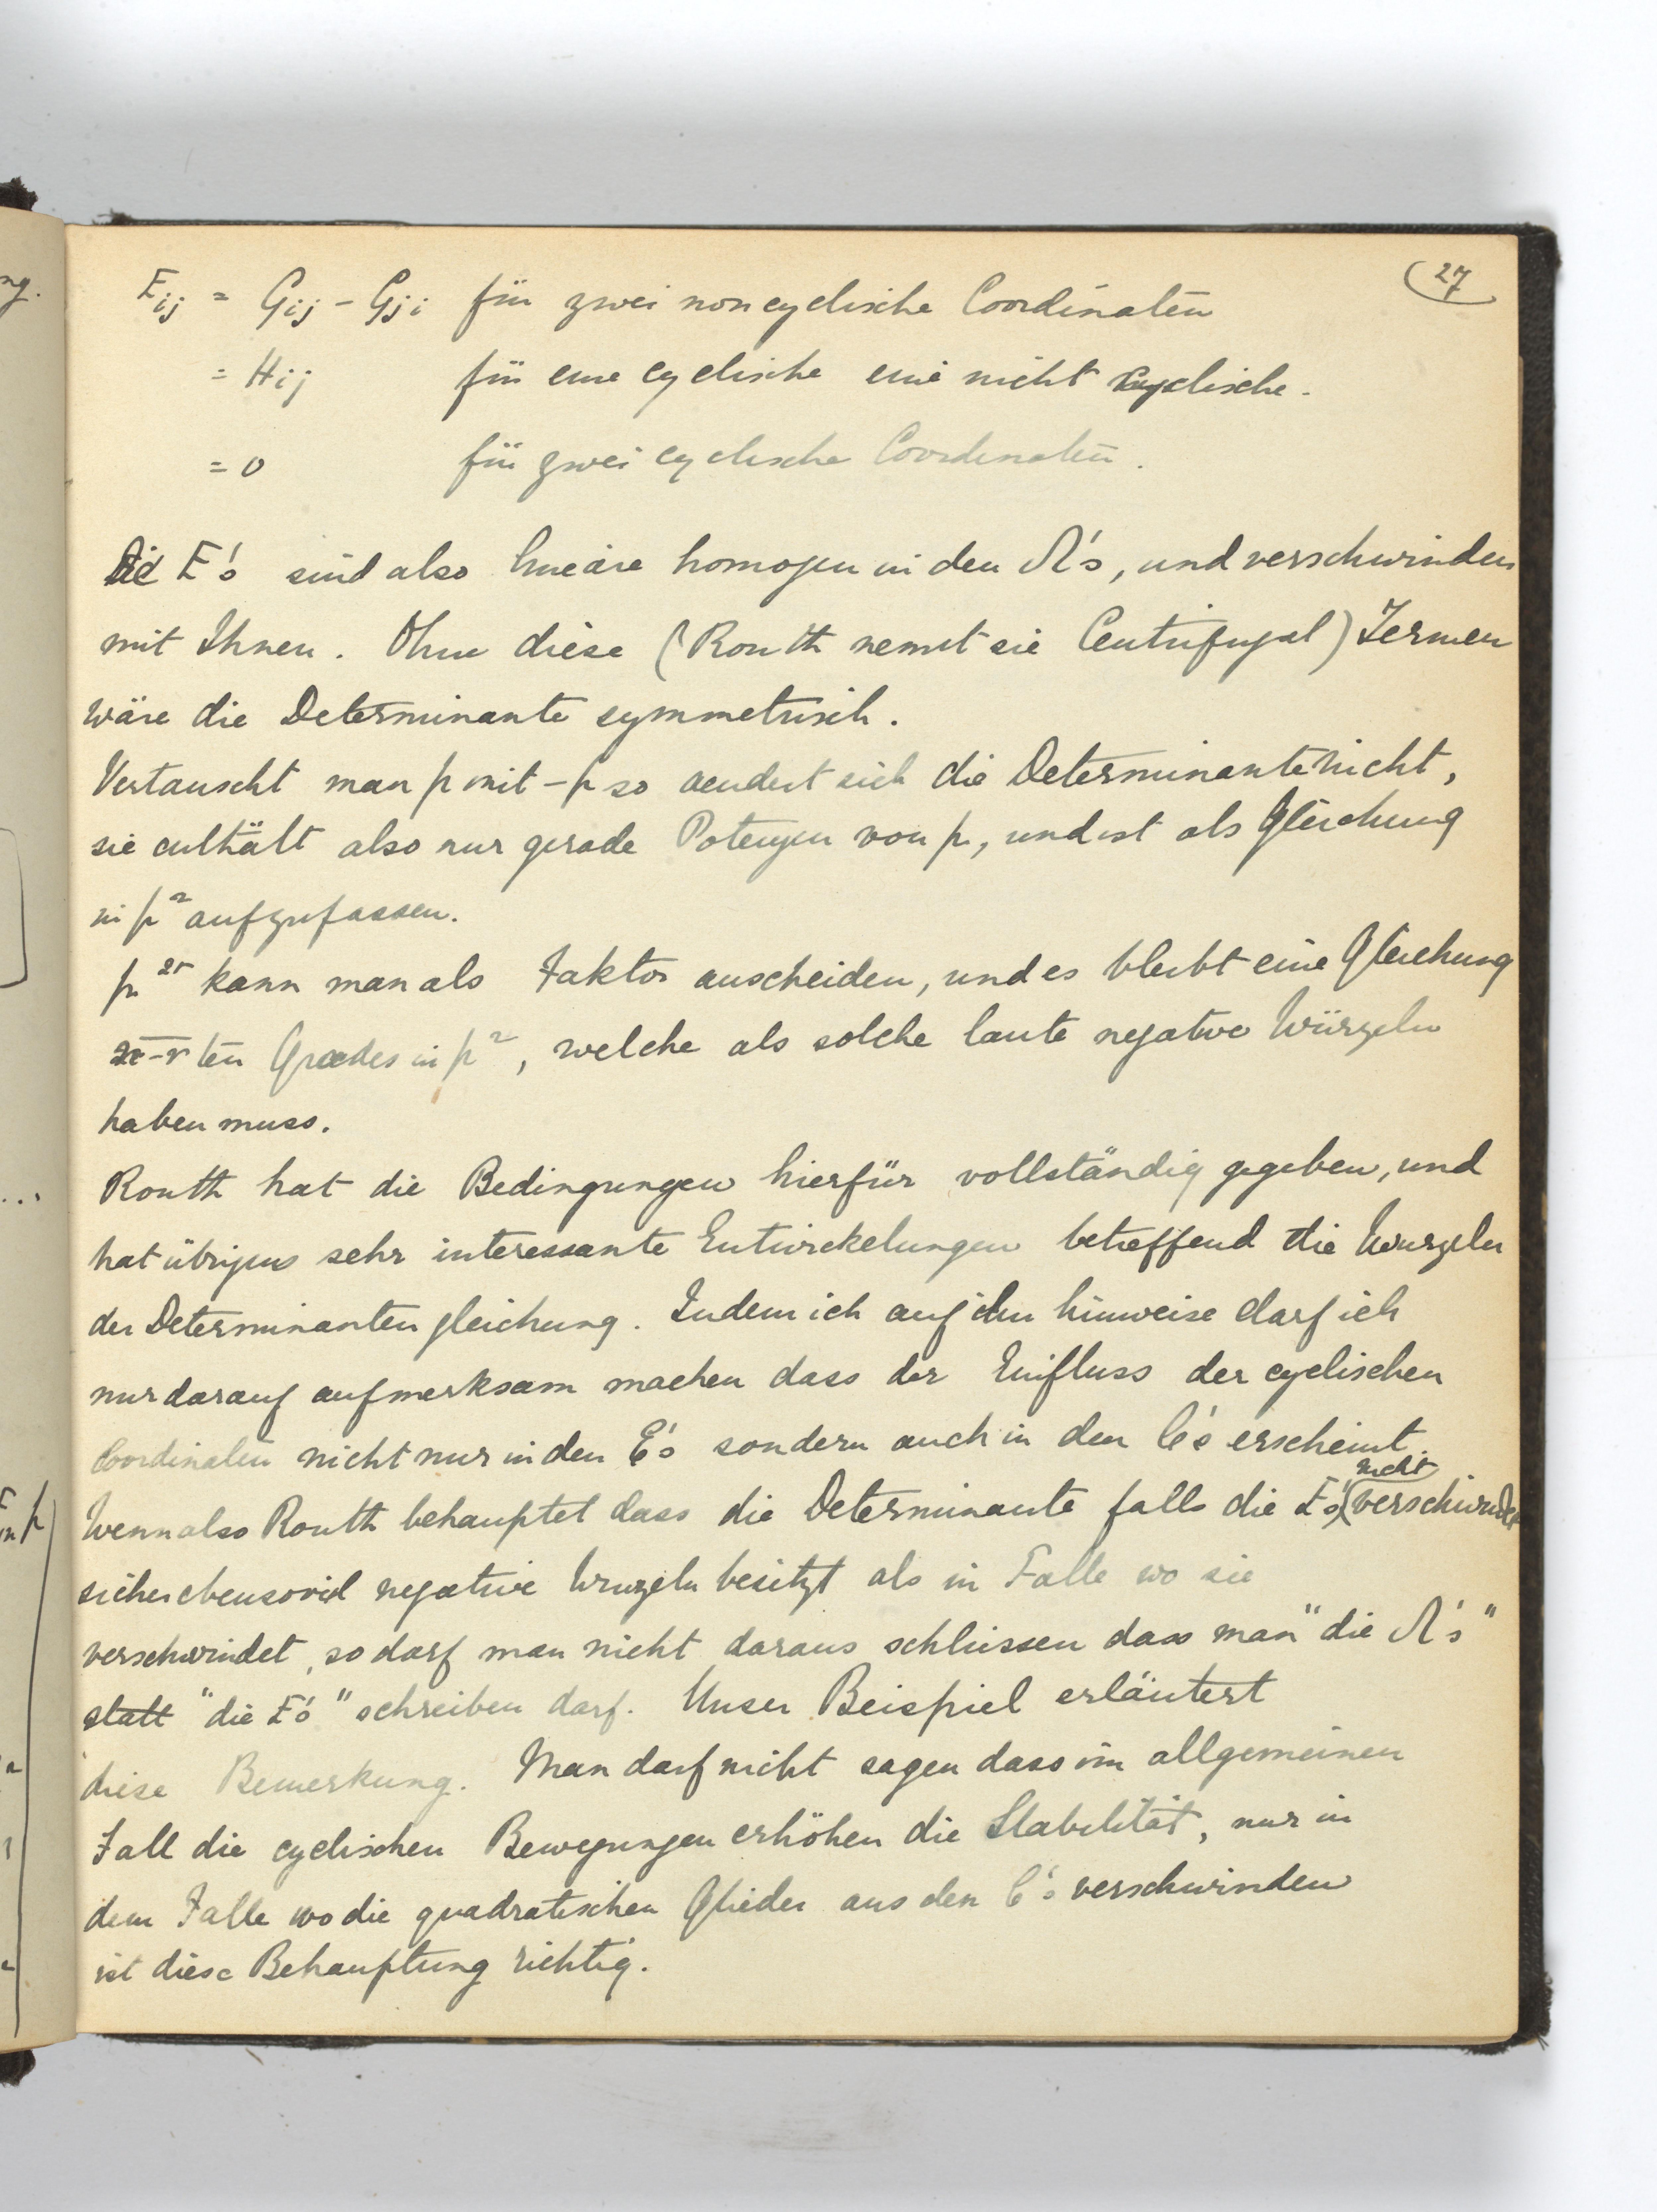 27
E_ij = G_ij - G_ji für zwei noncyclische Coordinaten
= H_ij für eine cyclische eine nicht cyclische.
= 0 für zwei cyclische Coordinaten.
Die E's sind also lineare homogen in den Λ's, und verschwinden
mit Ihnen. Ohne diese (Routh nennt sie Centrifugal) Termen
wäre die Determinante symmetrisch.
Vertauscht man p mit -p so aendert sich die Determinante nicht,
sie enthält also nur gerade Potenzen von p, und ist als Gleichung
in p² aufzufassen.
p^2r kann man als Faktor auscheiden, und es bleibt eine Gleichung
ten Grades in p², welche als solche laute negative Würzeln
haben muss.
Routh hat die Bedingungen hierfür vollständig gegeben, und
hat übrigens sehr interessante Entwickelungen betreffend die Wurzeln
der Determinantengleichung. Indem ich auf ihn hinweise darf ich
nur darauf aufmerksam machen dass der Einfluss der cyclischen
Coordinaten nicht nur in den E's sondern auch in den C's erscheint.
nicht
Wenn also Routh behauptet dass die Determinante falls die E's verschwinden
sicher ebensoviel negative Wurzeln besitzt als in Falle wo sie
verschwindet, so darf man nicht daraus schliessen dass man "die Λ's"
statt "die E's" schreiben darf. Unser Beispiel erläutert
diese Bemerkung. Man darf nicht sagen dass im allgemeinen
Fall die cyclischen Bewegungen erhöhen die Stabilität, nur in
dem Falle wo die quadratischen Glieder aus den C's verschwinden
ist diese Behauptung richtig.